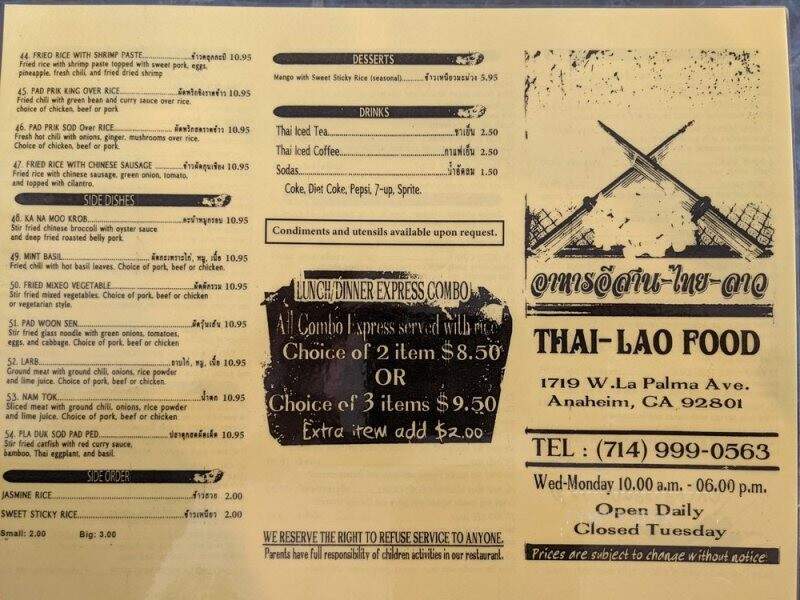 44. FRIED RICE WITH SHRIMP PASTE..........ข้าวคลุกกะปิ 10.95
Fried rice with shrimp paste topped with sweet pork, eggs,
pineapple, fresh chili, and fried dried shrimp
45. PAD PRIK KING OVER RICE..........ผัดพริกขิงราดข้าว 10.95
Fried chili with green bean and curry sauce over rice.
choice of chicken, beef or pork.
46. PAD PRIK SOD Over RICE..........ผัดพริกสดราดข้าว 10.95
Fresh hot chili with onions, ginger, mushrooms over rice.
Choice of chicken, beef or pork.
47. FRIED RICE WITH CHINESE SAUSAGE..........ข้าวผัดกุนเชียง 10.95
Fried rice with chinese sausage, green onion, tomato,
and topped with cilantro.
SIDE DISHES
48. KA NA MOO KROB..........คะน้าหมูกรอบ 10.95
Stir fried chinese broccoli with oyster sauce
and deep fried roasted belly pork.
49. MINT BASIL..........ผัดกะเพราะไก่, หมู, เนื้อ 10.95
Fried chili with hot basil leaves. Choice of pork, beef or chicken.
50. FRIED MIXEO VEGETABLE..........ผัดผักรวม 10.95
Stir fried mixed vegetables. Choice of pork, beef or chicken
or vegetarian style.
51. PAD WOON SEN..........ผัดวุ้นเส้น 10.95
Stir fried glass noodle with green onions, tomatoes,
eggs, and cabbage. Choice of pork, beef or chicken
52. LARB..........ลาบไก่, หมู, เนื้อ 10.95
Ground meat with ground chili, onions, rice powder
and lime juice. Choice of pork, beef or chicken.
53. NAM TOK..........น้ำตก 10.95
Sliced meat with ground chili, onions, rice powder
and lime juice. Choice of pork, beef or chicken
54. PLA DUK SOD PAD PED..........ปลาดุกสดผัดเผ็ด 10.95
Stir fried catfish with red curry sauce,
bamboo, Thai eggplant, and basil.
SIDE ORDER
JASMINE RICE..........ข้าวสวย 2.00
SWEET STICKY RICE..........ข้าวเหนียว 2.00
Small: 2.00 Big: 3.00
DESSERTS
Mango with Sweet Sticky Rice (seasonal)..........ข้าวเหนียวมะม่วง 5.95
DRINKS
Thai Iced Tea..........ชาเย็น 2.50
Thai Iced Coffee..........กาแฟเย็น 2.50
Sodas..........น้ำอัดลม 1.50
Coke, Diet Coke, Pepsi, 7-up, Sprite.
Condiments and utensils available upon request.
LUNCH/DINNER EXPRESS COMBO
All Combo Express served with rice
Choice of 2 item $8.50
OR
Choice of 3 items $9.50
Extra item add $2.00
WE RESERVE THE RIGHT TO REFUSE SERVICE TO ANYONE.
Parents have full responsibility of children activities in our restaurant.
อาหารอีสาน-ไทย-ลาว
THAI-LAO FOOD
1719 W.La Palma Ave.
Anaheim, CA 92801
TEL : (714) 999-0563
Wed-Monday 10.00 a.m. - 06.00 p.m.
Open Daily
Closed Tuesday
Prices are subject to change without notice